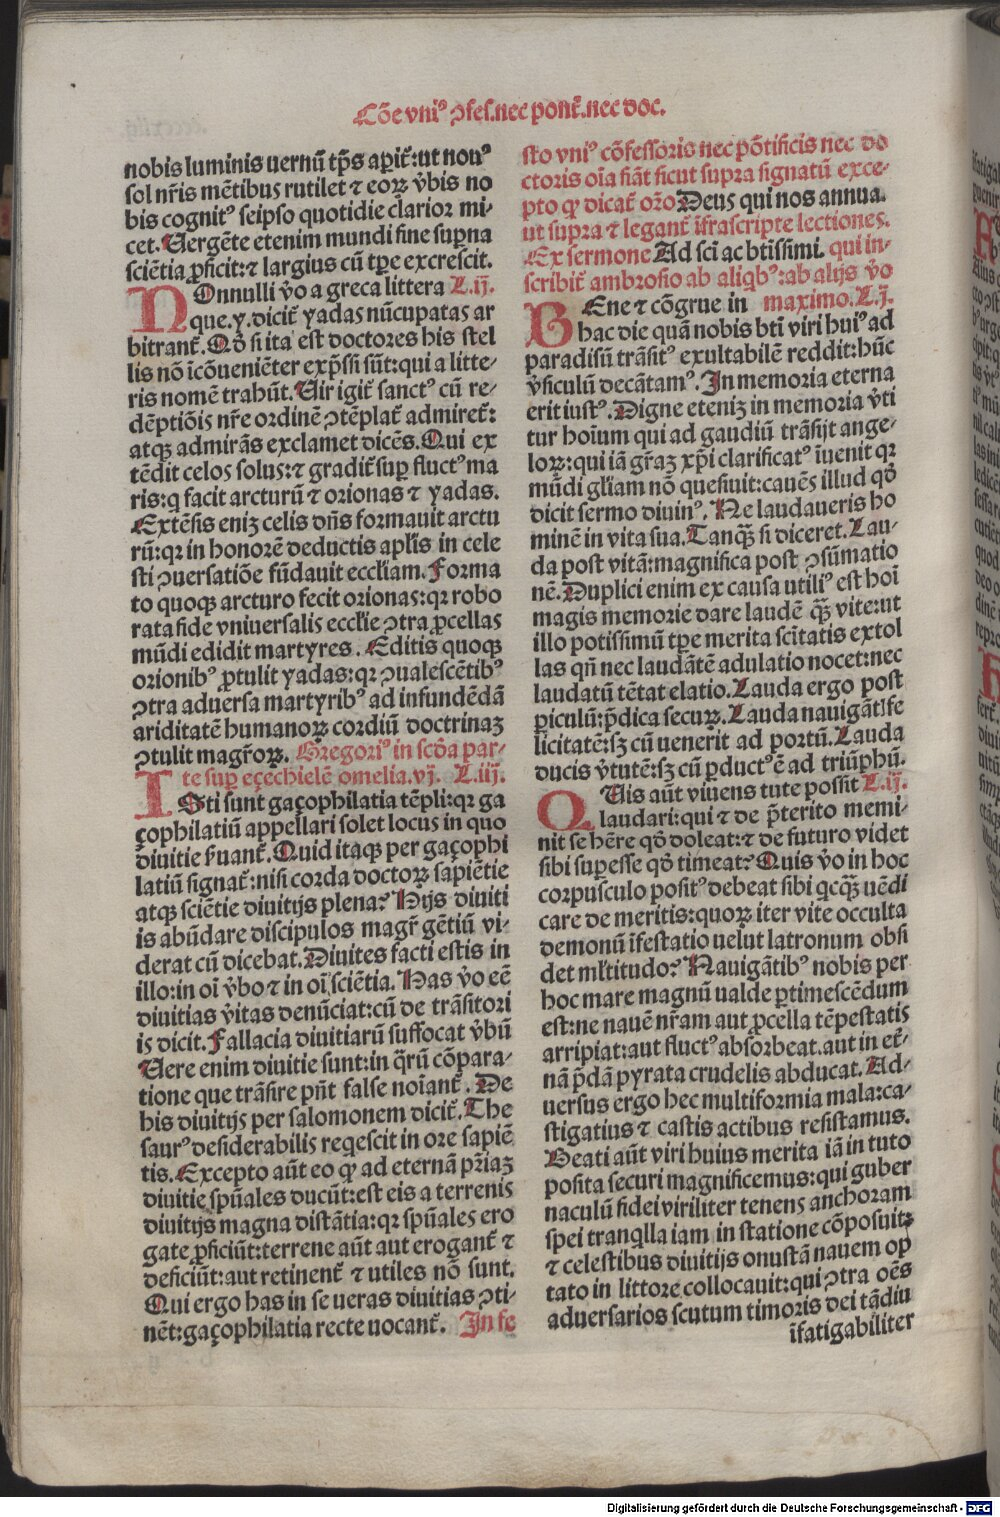 Cōe vniꝰ ꝯfes.nec pont̄.nec doc.
nobis luminis uernū tp̄s aꝑit̄:ut nouꝰ
sol nr̄is mētibus rutilet ⁊ eoꝝ v̄bis no
bis cognitꝰ seipso quotidie clarior mi-
cet.Uergēte etenim mundi fine suꝑna
sciētia ꝓficit:⁊ largius cū tꝑe excrescit.
NOnnulli v̄o a greca littera L.ij.
que.y.dicit̄ yadas nūcupatas ar
bitrant̄.Qd̄ si ita est doctores his stel
lis nō īcōueniēter exp̄ssi sūt:qui a litte-
ris nomē trahūt.Uir igit̄ sanctꝰ cū re-
dēptiōis nr̄e ordinē ꝯtēplat̄ admiret̄:
atqꝫ admirās exclamet dicēs.Qui ex
tēdit celos solus:⁊ gradit̄ suꝑ fluctꝰ ma
ris:q facit arcturū ⁊ orionas ⁊ yadas.
Extēsis eniꝫ celis dn̄s formauit arctu
rū:qꝛ in honorē deductis apl̄is in cele
sti ꝯuersatiōe fūdauit eccl̄iam.Forma
to quoqꝫ arcturo fecit orionas:qꝛ robo
rata fide vniuersalis eccl̄ie ꝯtra ꝓcellas
mūdi edidit martyres. Editis quoqꝫ
orionibꝰ ꝓtulit yadas:qꝛ ꝯualescētibꝰ
ꝯtra aduersa martyribꝰ ad infundēdā
ariditatē humanoꝝ cordiū doctrinaꝫ
ꝯtulit magr̄oꝝ. Gregoriꝰ in scd̄a par-
te suꝑ eçechielē omelia.vj. L.iij.
ISti sunt gaçophilatia tēpli:qꝛ ga
çophilatiū appellari solet locus in quo
diuitie ẜuant̄.Quid itaqꝫ per gaçophi
latiū signat̄:nisi corda doctoꝝ sapiētie
atqꝫ sciētie diuitijs plena? Hijs diuiti
is abūdare discipulos magr̄ gētiū vi-
derat cū dicebat.Diuites facti estis in
illo:in oī v̄bo ⁊ in oī sciētia.Has v̄o eē
diuitias v̄itas denūciat:cū de trāsitori
is dicit.Fallacia diuitiarū suffocat v̄bū
Uere enim diuitie sunt:in q̄rū cōpara-
tione que trāsire pn̄t false noīant̄. De
his diuitijs per salomonem dicit̄.The
saurꝰ desiderabilis reqescit in ore sapiē
tis.Excepto aūt eo qꝙ ad eternā pr̄iaꝫ
diuitie spūales ducūt:est eis a terrenis
diuitijs magna distātia:qꝛ spūales ero
gate ꝓficiūt:terrene aūt aut erogant̄ ⁊
deficiūt:aut retinent̄ ⁊ utiles nō sunt.
Qui ergo has in se ueras diuitias ꝯti-
nēt:gaçophilatia recte uocant̄. In fe
sto vniꝰ cōfessoris nec pōtificis nec do
ctoris oīa fiāt sicut supra signatū exce-
pto qꝙ dicat̄ or̄o Deus qui nos annua.
ut supra ⁊ legant̄ īfrascripte lectiones.
Ex sermone Ad sc̄i ac btīssimi. qui in-
scribit̄ ambrosio ab aliqbꝰ:ab alijs v̄o
BEne ⁊ cōgrue in maximo.L.j.
hac die quā nobis bt̄i viri huiꝰ ad
paradisū trāsitꝰ exultabilē reddit:hūc
v̄siculū decātamꝰ.In memoria eterna
erit iustꝰ.Digne eteniꝫ in memoria v̄ti
tur hoīum qui ad gaudiū trāsijt ange-
loꝝ:qui iā gr̄aꝫ xp̄i clarificatꝰ īuenit qꝛ
mūdi gl̄iam nō quesiuit:cauēs illud qd̄
dicit sermo diuinꝰ. Ne laudaueris ho
minē in vita sua.Tanq̄ꝫ si diceret.Lau-
da post vitā:magnifica post ꝯsūmatio
nē.Duplici enim ex causa utiliꝰ est hoī
magis memorie dare laudē q̄ꝫ vite:ut
illo potissimū tꝑe merita sc̄itatis extol
las qn̄ nec laudātē adulatio nocet:nec
laudatū tētat elatio.Lauda ergo post
ꝑiculū:p̄dica securꝝ.Lauda nauigāt̄ fe
licitatē:sꝫ cū uenerit ad portū.Lauda
ducis v̄tutē:sꝫ cū ꝑductꝰ ē ad triūphū.
QUis aūt viuens tute possit L.ij.
laudari:qui ⁊ de p̄terito memi-
nit se hēre qd̄ doleat:⁊ de futuro videt
sibi suꝑesse qd̄ timeat? Quis v̄o in hoc
corpusculo positꝰ debeat sibi qcq̄ꝫ uēdi
care de meritis:quoꝝ iter vite occulta
demonū īfestatio uelut latronum obsi
det ml̄titudo? Nauigātibꝰ nobis per
hoc mare magnū ualde ꝑtimescēdum
est:ne nauē nr̄am aut ꝓcella tēpestatis
arripiat:aut fluctꝰ absorbeat.aut in et̄-
nā p̄dā pyrata crudelis abducat.Ad-
uersus ergo hec multiformia mala:ca-
stigatius ⁊ castis actibus resistamus.
Beati aūt viri huius merita iā in tuto
posita securi magnificemus:qui guber
naculū fidei viriliter tenens anchoram
spei tranqlla iam in statione cōposuit:
⁊ celestibus diuitijs onustā nauem op
tato in littore collocauit:qui ꝯtra oēs
aduersarios scutum timoris dei tādiu
īfatigabiliter
Digitalisierung gefördert durch die Deutsche Forschungsgemeinschaft - DFG